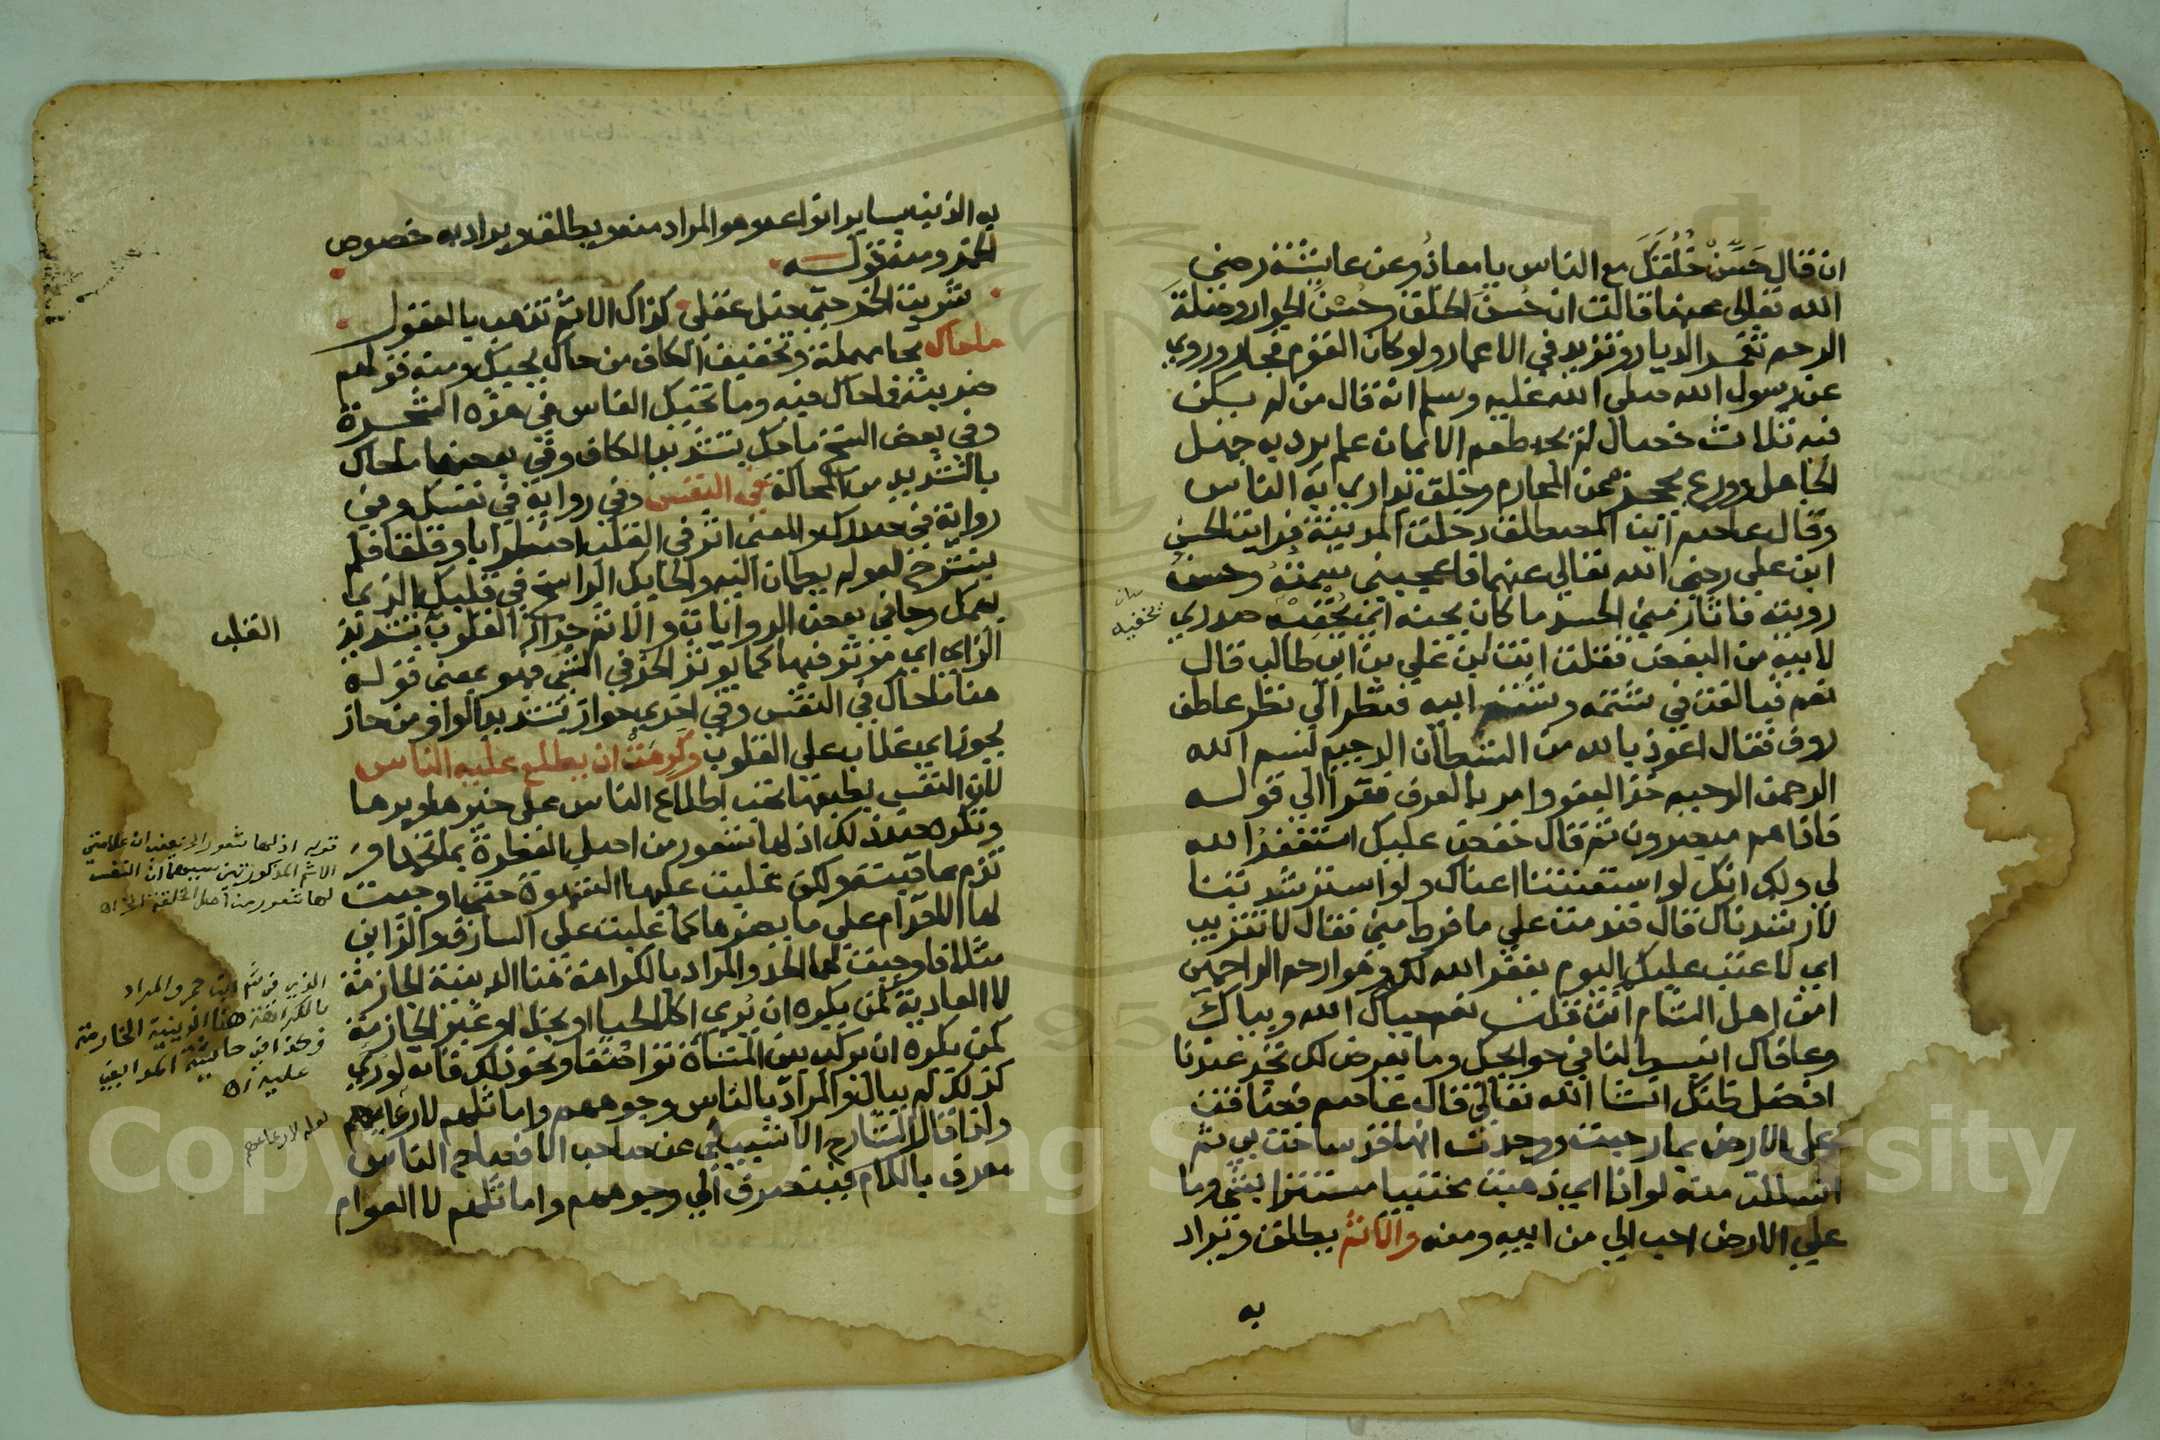 ان قال حَسِّنْ خُلُقَكَ مع الناس يا معاذُ وعن عايشة رضي
الله تعالى عنها قالت ان حُسنَ الخلق وحُسْنَ الجوار وصلةَ
الرحم تعمر الديار وتزيد في الاعمار ولو كان القوم فجار وروي
عن رسول الله صلى الله عليه وسلم انه قال من لم يكن
فيه ثلاث خصال لم يجد طعم الايمان علم يرد به جهل
الجاهل وورع يحجزه عن المحارم وخلق يداري به الناس
وقال عاصم ابن المصطلق دخلت المدينة فرايت الحسن
ابن علي رضي الله تعالى عنهما فاعجبني سمته وحسنُ
رويته فاثار مني الحسد ما كان يجنه اي يُخْفِيْه صدري
لابيه من البغض فقلت انت ابن علي بن ابي طالب قال
نعم فبالغت في شتمه وشتم ابيه فنظر الي نظر عاطف
روف فقال اعوذ بالله من الشيطان الرجيم بسم الله
الرحمن الرحيم خذ العفو وامر بالعرف فقرا الي قوله
فاذا هم مبصرون ثم قال خفض عليك استغفرُ الله
لي ولك انك لو استعنتنا اعناك ولو استرشدتنا
لارشدناك قال فندمت علي ما فرط مني فقال لا تثريب
اي لا عتب عليك اليوم يغفر الله لك وهو ارحم الراحمين
امن اهل الشام انت قلت نعم حياك الله وبياك
وعافاك انبسط لنا في حوايجك وما يعرض لك تجد عندنا
افضل ظنك انشا الله تعالى قال عاصم فضاقت
علي الارض بما رحبت ووددت انها قد ساخت بي ثم
انسللت منه لواذا اي ذهبت مختبيا مستترا بشي وما
علي الارض احب الي من ابيه ومنه والاثم يطلق ويراد
به
سان
يخفيه
به الذنب بساير انواعه وهو المراد منه ويطلق ويراد به خصوص
الخمر ومنه قوله
شربت الخمر حتي ضل عقلي كذاك الاثم تذهب بالعقول
ما حاك بحا مهملة وتخفيف الكاف من حاك يحيك ومنه قولهم
ضربته فما حاك فيه وما تحيك الفاس في هذه الشجرة
وفي بعض النسخ ما حك بتشديد الكاف وفي بعضها ما حاك
بالتشديد من المحاكة في النفس وفي رواية في نفسك وفي
رواية في صدرك والمعني اثر في القلب اضطرابا وقلقا فلم
ينشرح له ولم يطمان اليه والحايك الراسخ في قلبك الذي
يهمك وجا في بعض الروايات والاثم حزاز القلوب بتشديد
الزاي اي مؤثر فيها كما يوثر الحز في الشي فهو بمعني قوله
هنا ما حاك في النفس وفي اخري حواز بتشديد الواو من حاز
يحوز اي يغلب علي القلوب وكَرِهْتَ ان يطلع عليه الناس
لان النفس بطبعها تحب اطلاع الناس علي خيرها وبرها
وتكره ضد ذلك اذ لها شعور من اصلي الفطرة بما تحمد او
تذم عاقبته ولكن غلبت عليها الشهوة حتي اوجبت
لها الاقدام علي ما يضرها كما غلبت علي السارق والزاني
مثلا فاوجبت لهما الحد والمراد بالكراهة هنا الدينية الجازمة
لا العادية كمن يكره ان يُري اكلا لحيا او بخل او غير الجازمة
كمن يكره ان يركب بين المشاة تواضعا ونحو ذلك فانه لو رُئي
كذلك لم يبال والمراد بالناس وجوههم واماثلهم لا رعاعهم
ولذا قال الشارح الاشبيلي عن صاحب الافصاح الناس
معرف باللام فينصرف الي وجوههم واماثلهم لا العوام
القلب
قوله اذ لها شعور الخ يعني ان علامتي
الاثم المذكورتين سببهما ان النفس
لها شعور من اصل الخلقة الخ اه
بالكراهة هنا الدينية الجازمة
وكذا في حاشية المدابغي
عليه اه
لعله لا رعاعهم
Copyright © King Saud University
1957